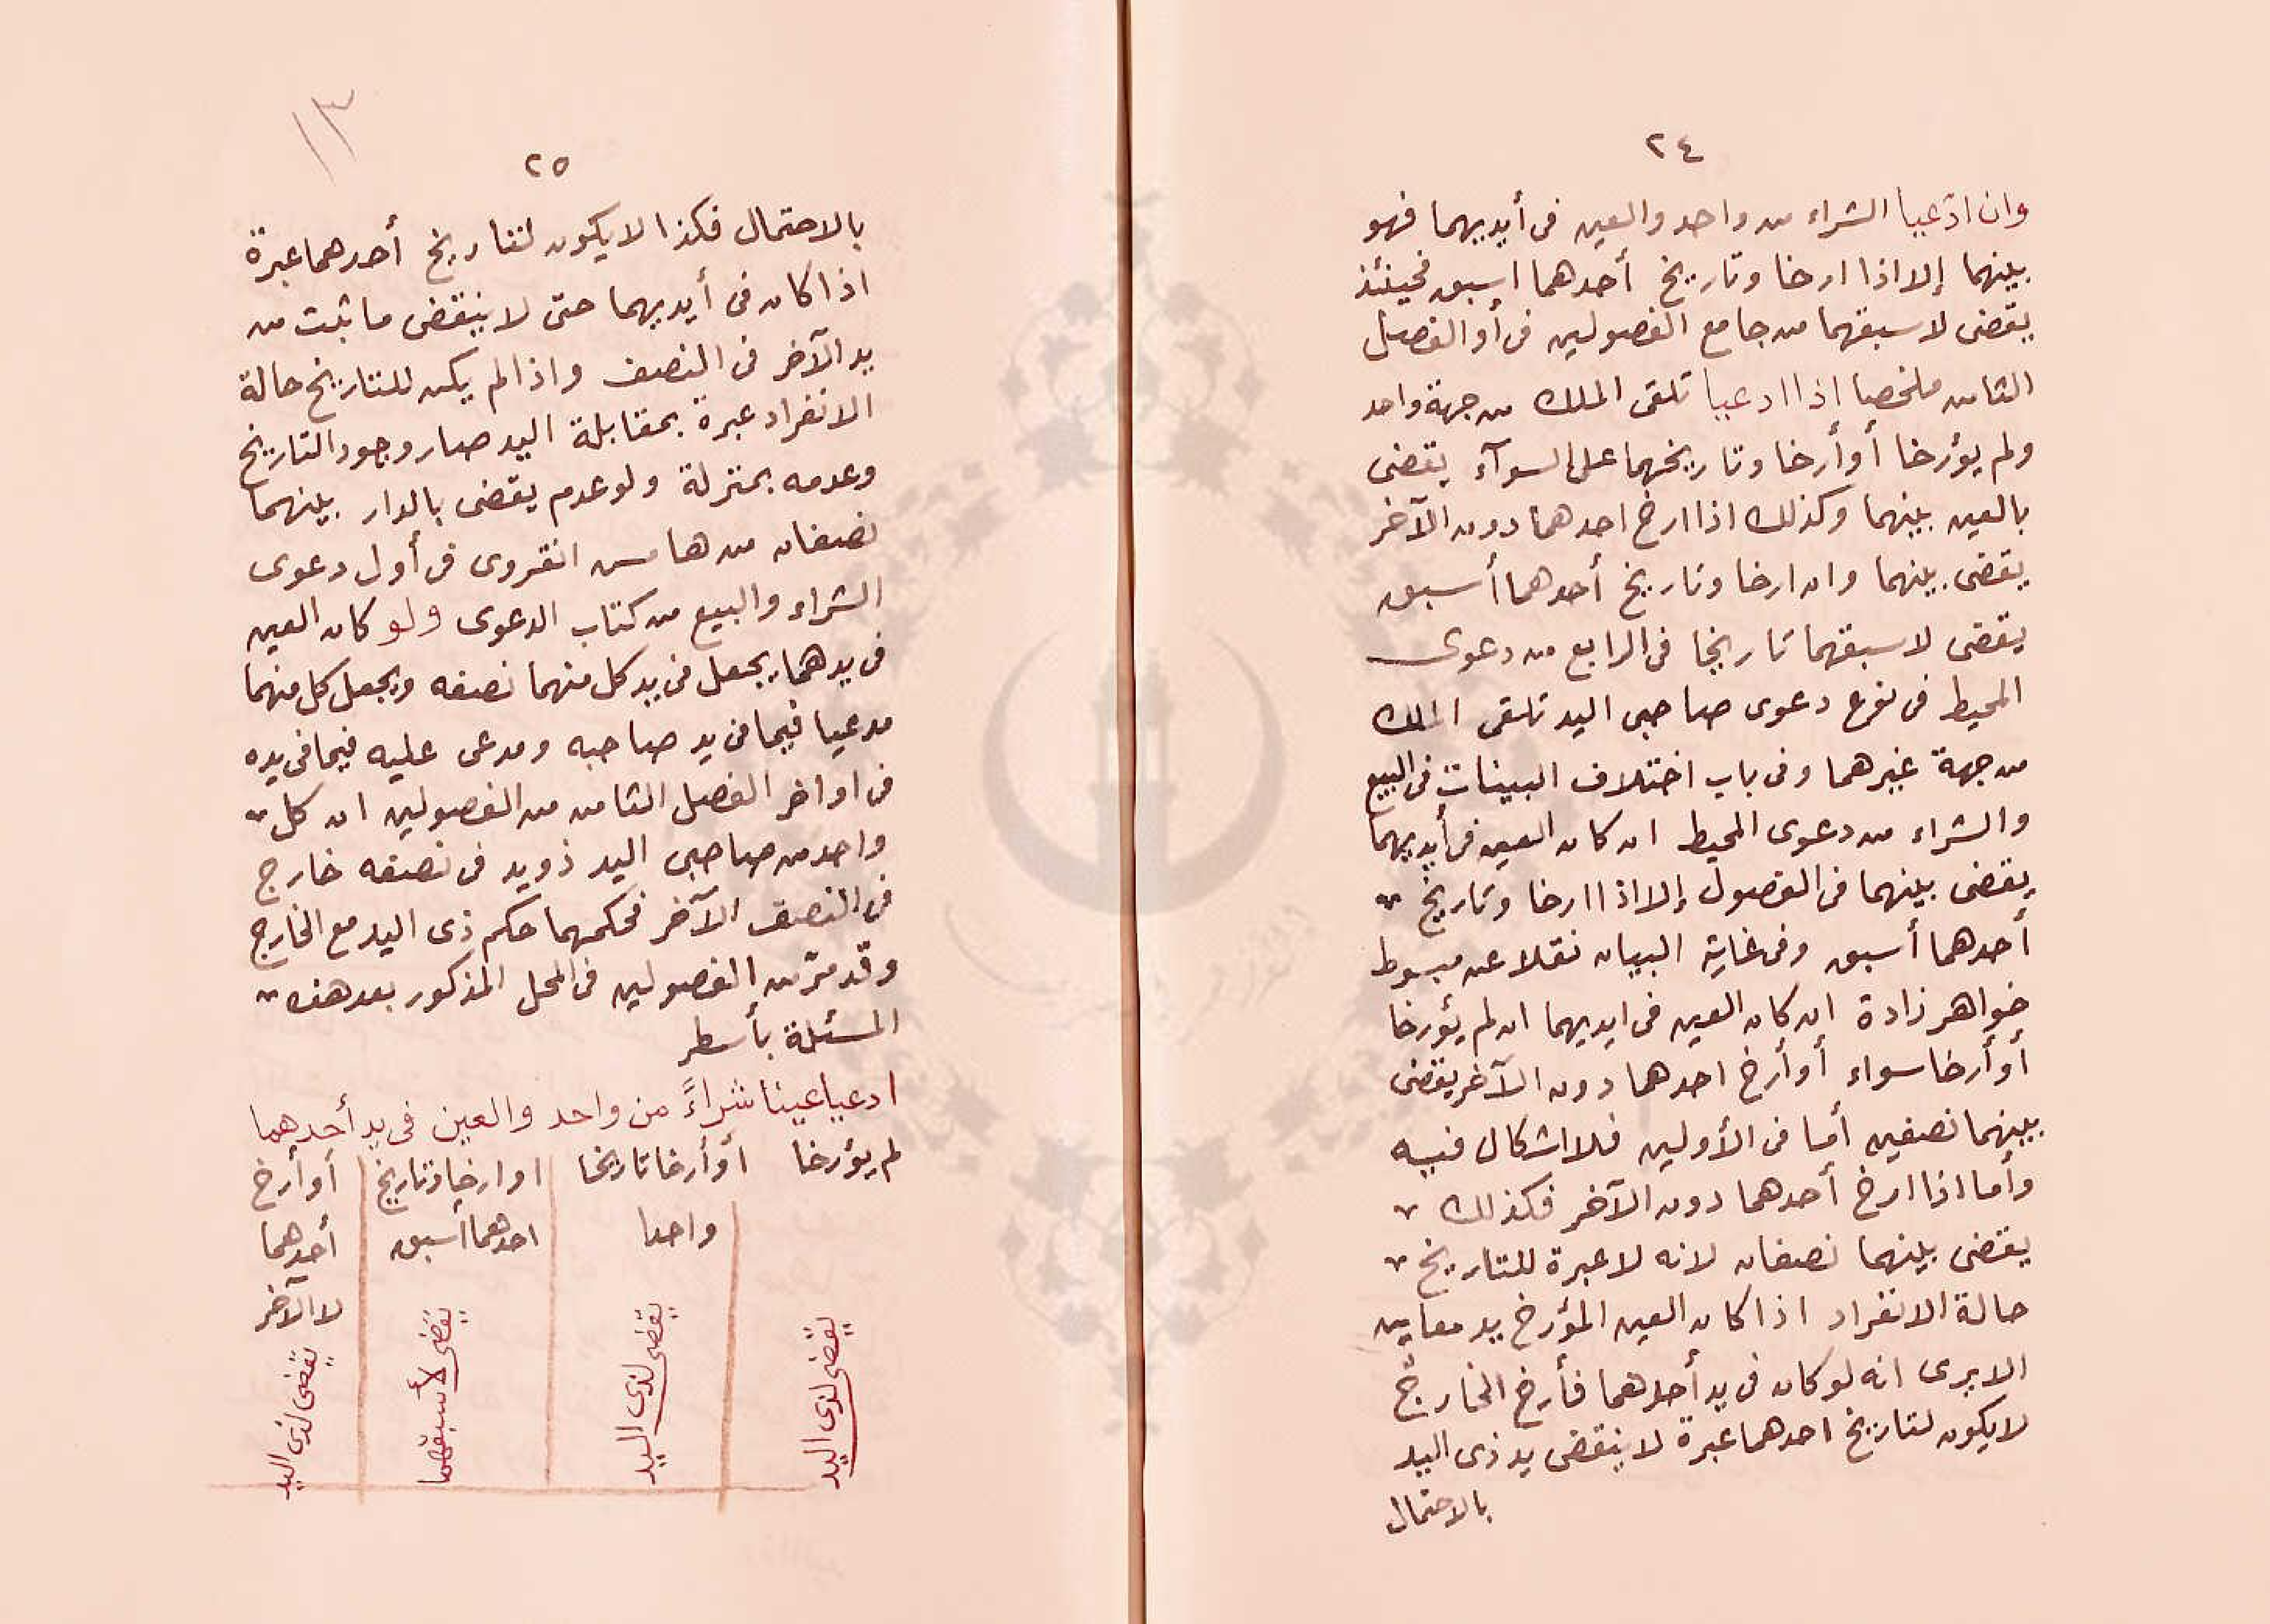 ٢٤
وان ادّعيا الشراء من واحد والعين فى أيديهما فهو
بينهما إلا اذا ارخا وتاريخ أحدهما اسبق فحينئذ
يقضى لاسبقهما من جامع الفصولين فى أو الفصل
الثامن ملخصا اذا ادعيا تلقى الملك من جهة واحد
ولم يؤرخا أو أرخا وتاريخهما على السوآء يقضى
بالعين بينهما وكذلك اذا ارخ احدهما دون الآخر
يقضى بينهما وان ارخا وتاريخ أحدهما أسبق
يقضى لاسبقهما تاريخا فى الرابع من دعوى
المحيط فى نوع دعوى صاحبى اليد تلقى الملك
من جهة غيرهما وفى باب اختلاف البينات فى البيع
والشراء من دعوى المحيط ان كان العين فى أيديهما
يقضى بينهما فى الفصول إلا اذا ارخا وتاريخ
أحدهما أسبق وفى غاية البيان نقلا عن مبسوط
خواهر زادة ان كان العين فى ايديهما ان لم يؤرخا
أو أرخا سواء أو أرخ احدهما دون الآخر يقضى
بينهما نصفين أما فى الأولين فلا اشكال فيه
وأما اذا ارخ أحدهما دون الآخر فكذلك
يقضى بينهما نصفان لانه لا عبرة للتاريخ
حالة الانفراد اذا كان العين المؤرخ يد معاين
الا يرى انه لو كان فى يد أحدهما فأرخ الخارج
لا يكون لتاريخ احدهما عبرة لا ينقضى يد ذى اليد
بالاحتمال
١٣
٢٥
بالاحتمال فكذا لا يكون لتاريخ أحدهما عبرة
اذا كان فى أيديهما حتى لا ينقضى ما ثبت من
يد الآخر فى النصف واذا لم يكن للتاريخ حالة
الانفراد عبرة بمقابلة اليد صار وجود التاريخ
وعدمه بمنزلة ولو عدم يقضى بالدار بينهما
نصفان من هامس انقروى فى أول دعوى
الشراء والبيع من كتاب الدعوى ولو كان العين
فى يدهما يجعل فى يد كل منهما نصفه ويجعل كل منهما
مدعيا فيما فى يد صاحبه ومدعى عليه فيما فى يده
فى اواخر الفصل الثامن من الفصولين ان كل
واحد من صاحبى اليد ذو يد فى نصفه خارج
فى النصف الآخر فحكمهما حكم ذى اليد مع الخارج
وقد مرّ من الفصولين فى المحل المذكور بعد هذه
المسئلة بأسطر
ادعيا عينا شراءً من واحد والعين فى يد أحدهما
لم يؤرخا أو أرخا تاريخا او ارخا وتاريخ أو أرخ
واحدا احدهما أسبق أحدهما
لا الآخر
يقضى لذى اليد
يقضى لذى اليد
يقضى لأسبقهما
يقضى لذى اليد